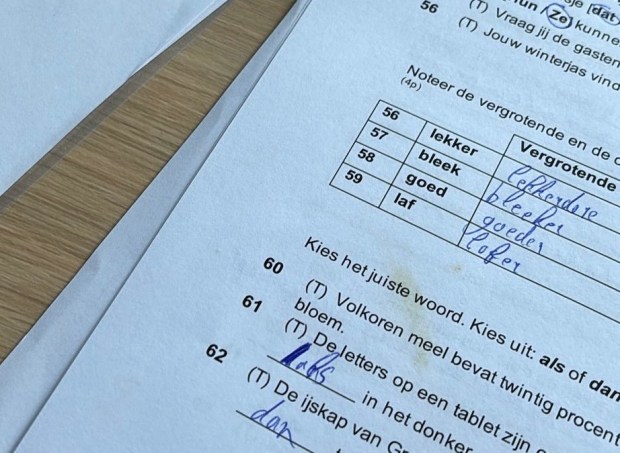 je [dat
un / Ze] kunne
56 (T) Vraag jij de gasten
(T) Jouw winterjas vind
Noteer de vergrotende en de o
(4p)
Vergrotende
56 lekker lekkerdere
57 bleek bleeker
58 goed goeder
59 laf lafer
Kies het juiste woord. Kies uit: als of dan
60 (T) Volkoren meel bevat twintig procent
bloem.
61 (T) De letters op een tablet zijn
als in het donker
62 (T) De ijskap van Gr
dan